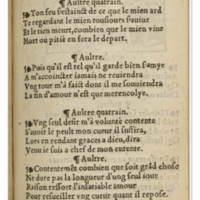 ¶ Aultre quatrain.
Ton feu sestaindt de ce que le mien ard
Te regardant le mien tousiours suruiue
Et le tien meurt, combien que le mien viue
Nort ou pitié en fera le depart.
¶ Aultre.
Puis qu'il est tel qu'il garde bien s'amye
A m'accointcter iamais ne reuiendra
Vng tour m'a faict dont il me souuiendra
La fin d'amour n'est que merencolye.
¶ Aultre quatrain.
Vng seul desir m'a volunté contente
S'auoir le peult mon cueur il suffira,
Lors en rendant graces a dieu, dira
Venu ie suis a chef de mon entente.
¶ Aultre.
Contentemēt combien que soit grād chose
Ne dure pas la longueur d'ung seul iour
Raison ressort l'insatiable amour
Peult recueillir vng cueur quant il repose.